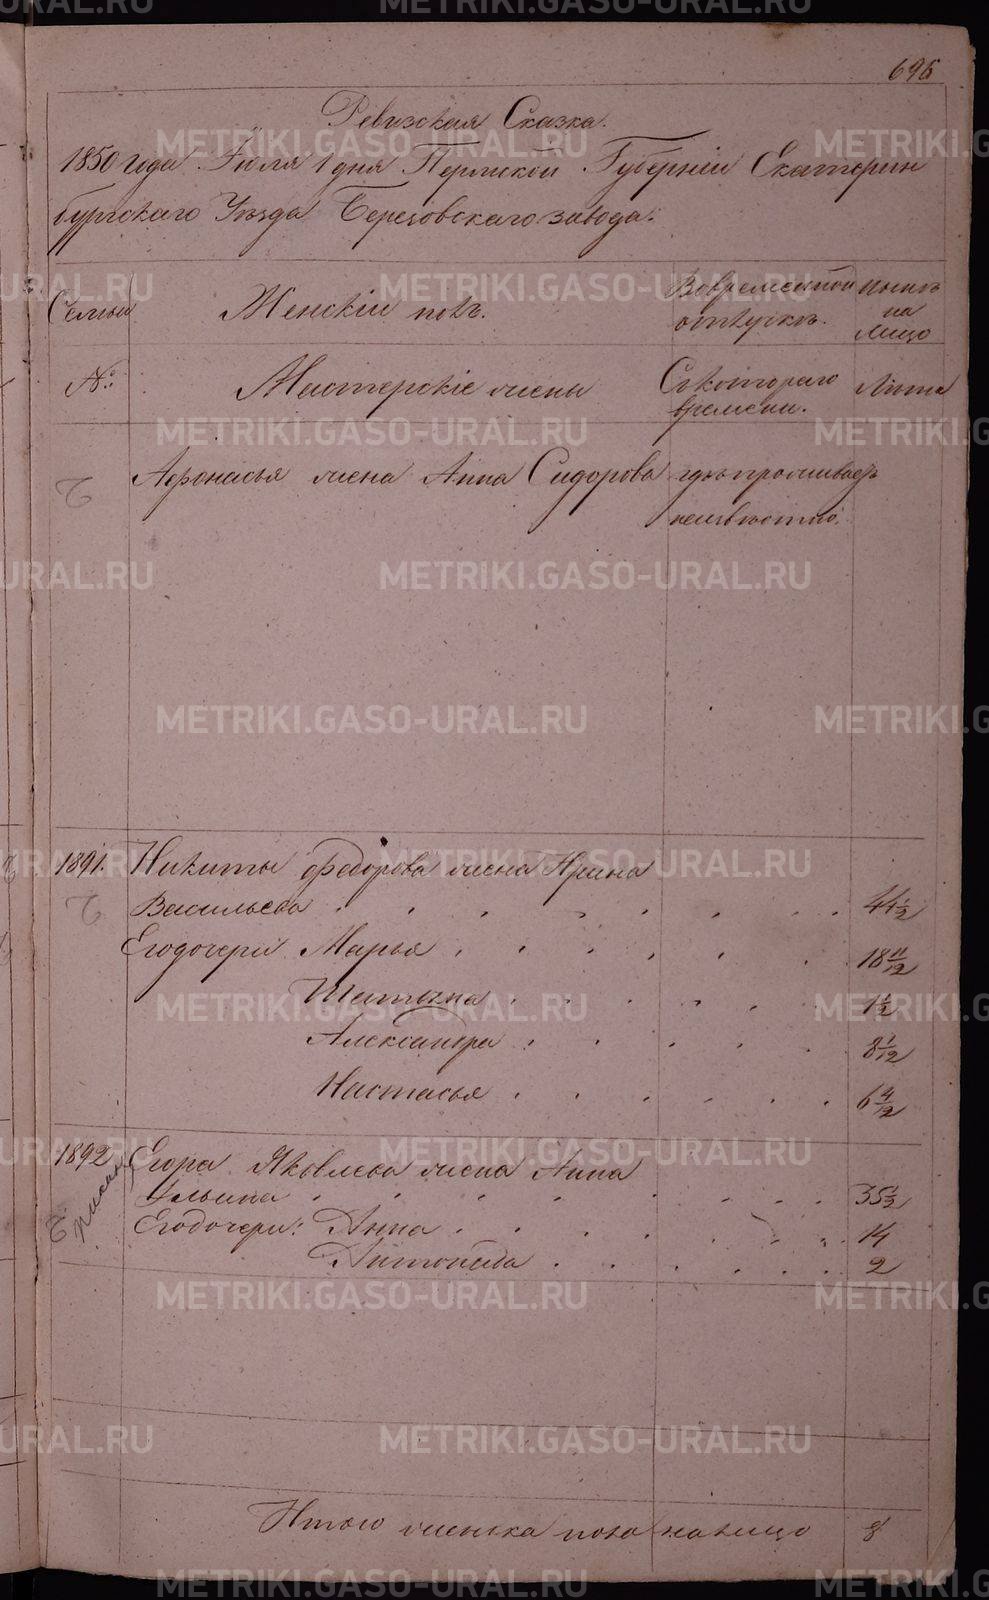 696
Ревизская Сказка.
1850 года Іюля 1 дня Пермской Губерніи Екатерин
бургскаго Уѣзда Березовскаго завода.
Семьи Женскій полъ. Вовременной отлучкѣ. Нынѣ на лицо
№: Мастерскіе жены Съкотораго времени. Лѣта
Афонасья жена Анна Сидорова гдѣ проживаетъ
неизвѣстно.
1891. Никиты Федорова жена Арина
Васильева 44 1/2
Егодочери Марья 18 11/12
1 1/2
Александра 8 1/12
Настасья 6 4/12
1892 Егора Яковлева жена Анна
Ильина 35 1/2
Егодочери: Анна 14
2
Итого женска пола налицо 8
METRIKI.GASO-URAL.RU